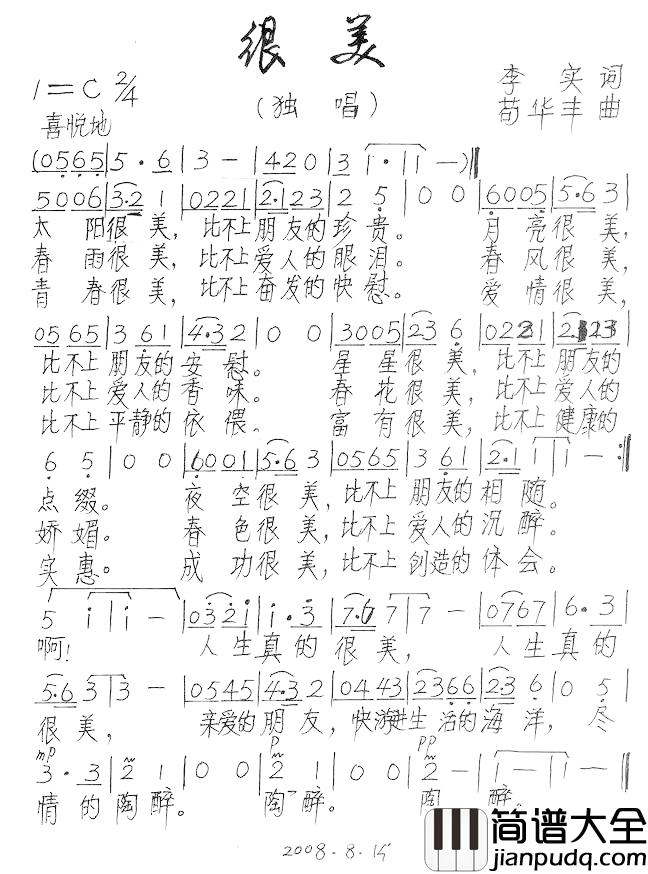 很 美
1=C 2/4
(独 唱)
李 实 词
荀华丰 曲
喜悦地
(0565|5·6|3-|420|3 i·|i i-)‖
5006|3·2 1|0221|2·123|2 5|0 0|6005|5·6 3|
太 阳很 美，比不上朋友的珍贵。月 亮很美，
春 雨很 美，比不上爱人的眼泪。春 风很美，
青 春很 美，比不上奋发的快慰。爱 情很美，
0565|3 61|4·32|0 0|3005|23 6|0221|2·123|
比不上朋友的安慰。星 星很美，比不上朋友的
比不上爱人的香味。春 花很美，比不上爱人的
比不上平静的依偎。富 有很美，比不上健康的
6 5|0 0|6001|5·6 3|0565|3 61|2·1 1|1 -:‖
点缀。夜 空很美，比不上朋友的相随。
娇媚。春 色很美，比不上爱人的沉醉。
实惠。成 功很美，比不上创造的体会。
5 i|i -|032i|i·3|7·67|7 -|0767|6·3|
啊！人生真的很美，人生真的
5·6 3|3 -|0545|4·32|0443|2366|2·3 6|0 5|
很美，亲爱的朋友，快游进生活的海洋，尽
mp p pp
3·3|2 1|0 0|2 1|0 0|2 -|1 -|1 -‖
情的陶醉。陶醉。陶醉。
2008.8.15
简谱大全
jianpudq.com